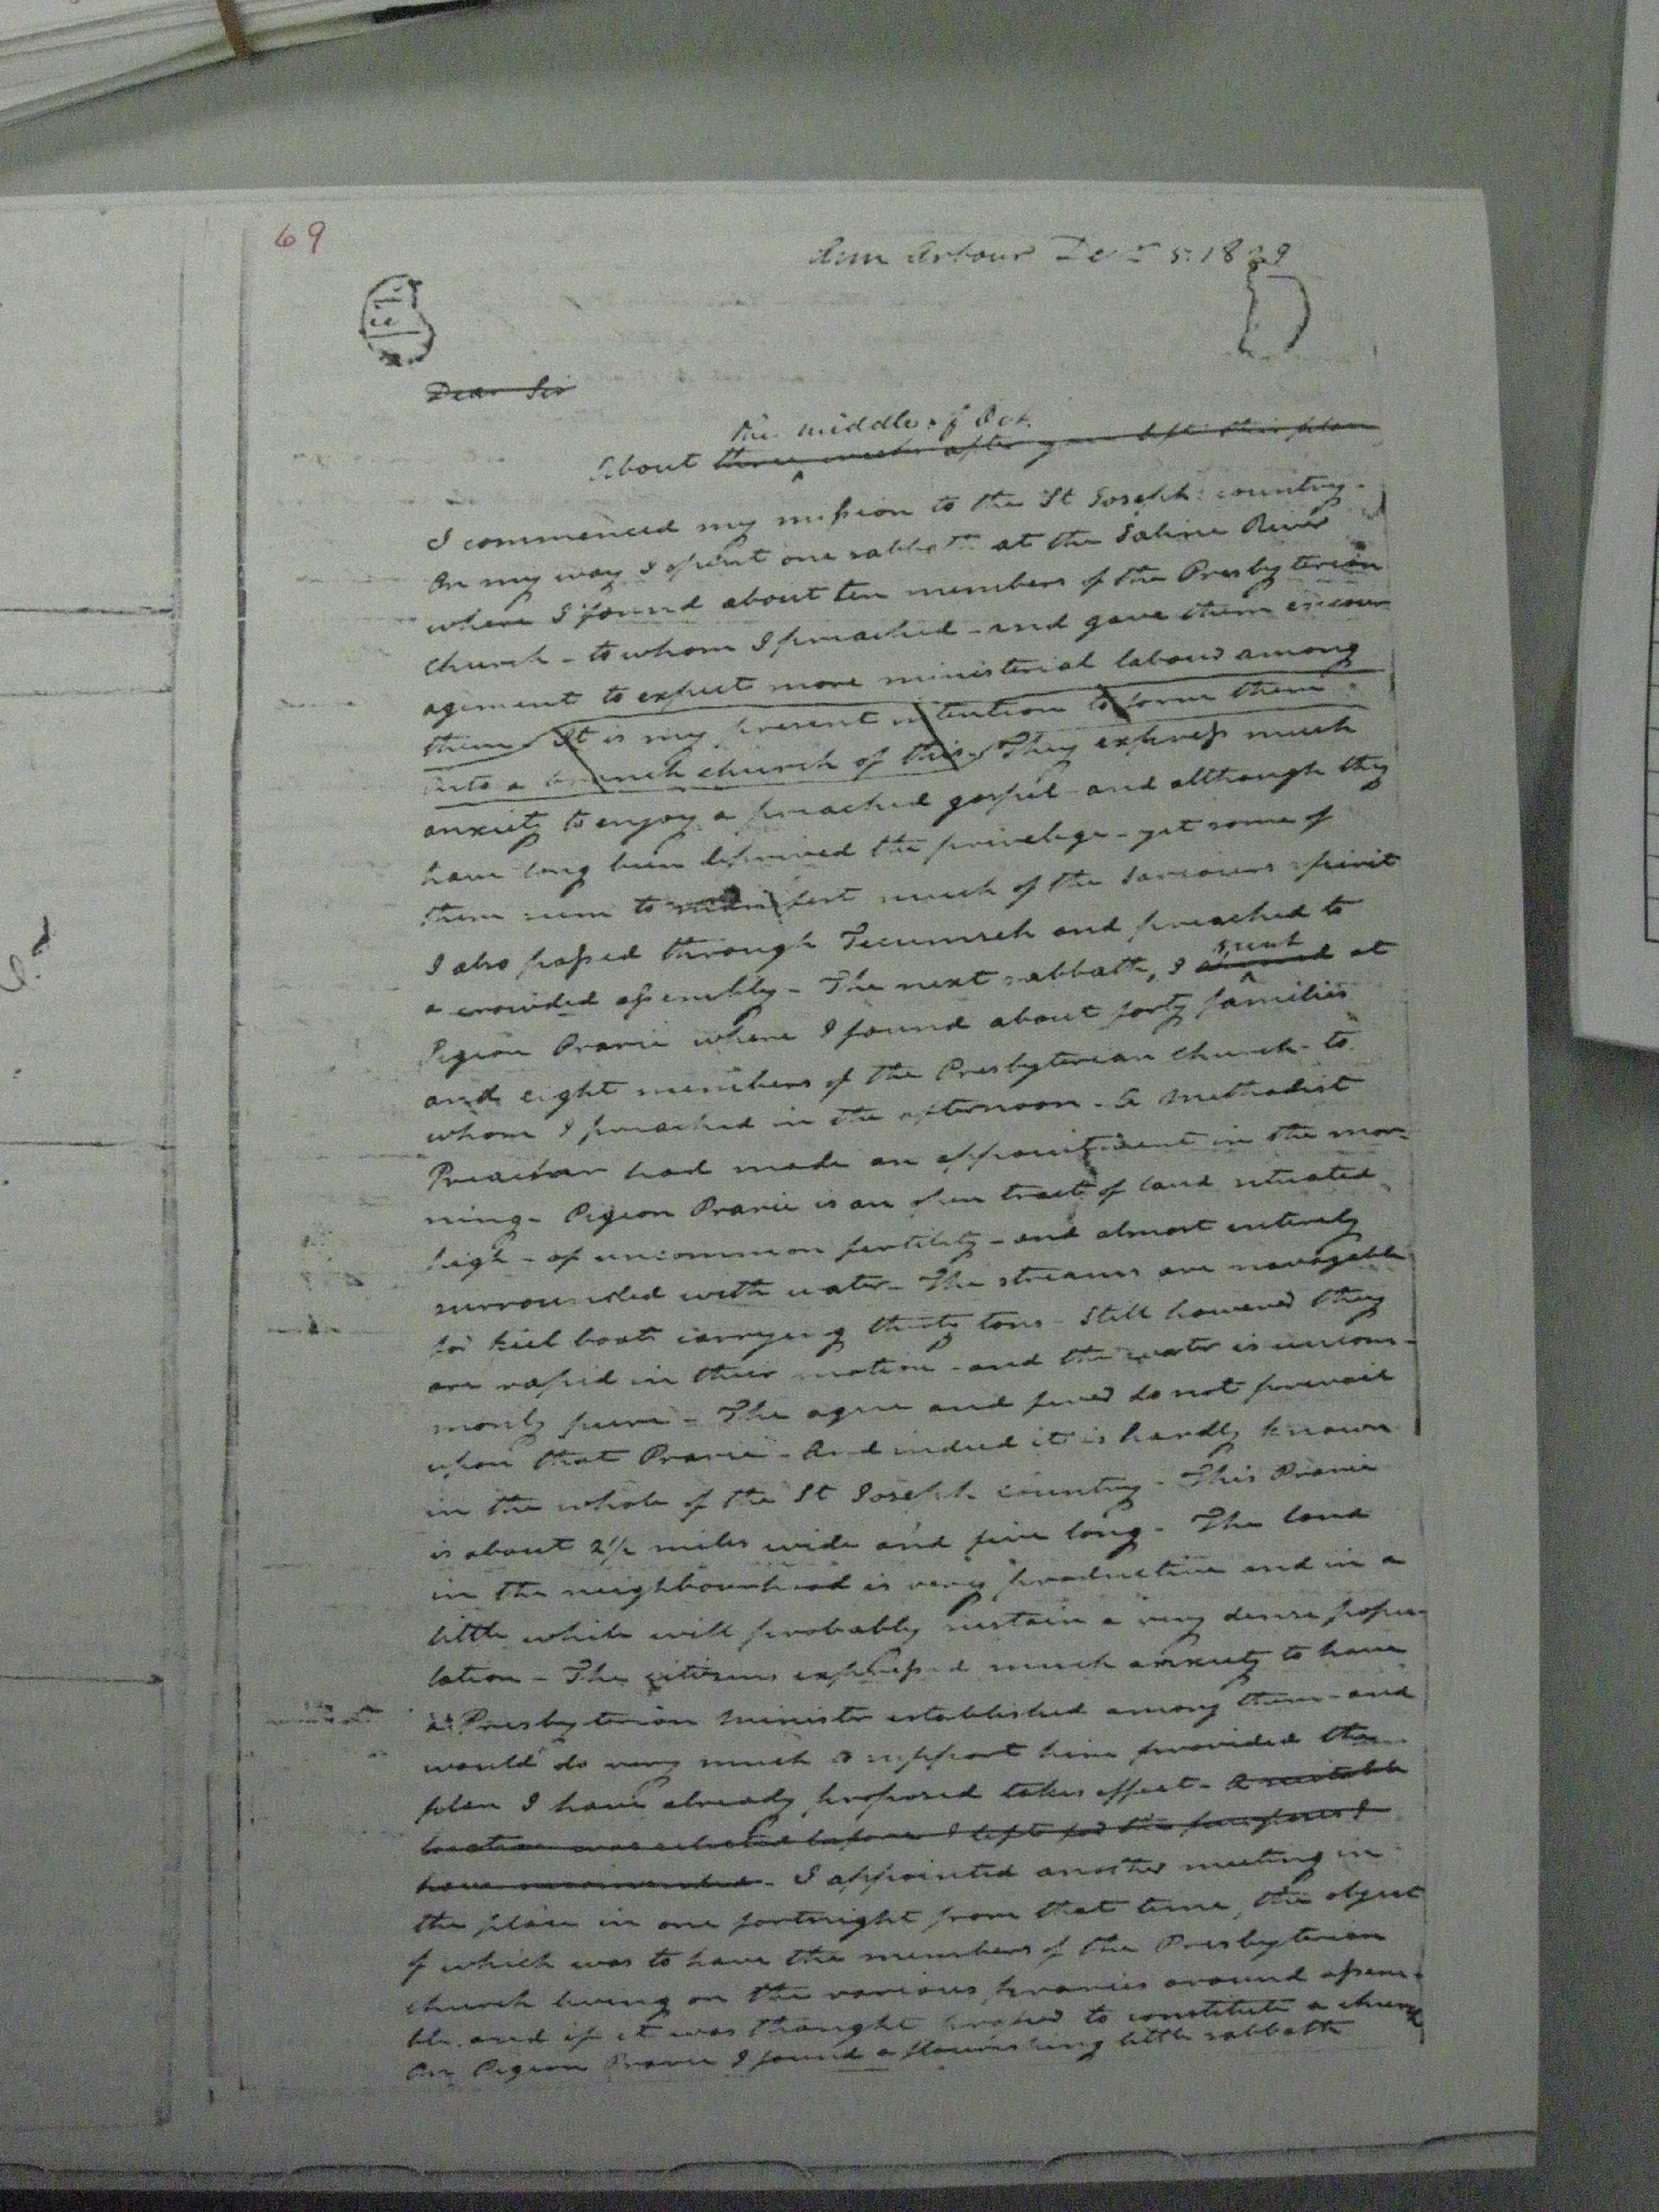 69
Ann Arbour Dec 5. 1829
Dear Sir
the middle of Oct.
About three weeks after you left this place
I commenced my mission to the St Joseph country.
On my way I spent one sabbath at the Saline River
where I found about ten members of the Presbyterian
church - to whom I preached - and gave them encour
agement to expect more ministerial labour among
them It is my present intention to form them
into a branch church of this. They express much
anxiety to enjoy a preached gospel and although they
have long been deprived the privelege - yet some of
them seem to manifest much of the Saviours spirit
I also passed through Tecumseh and preached to
a crowded assembly - The next sabbath, I
spent
at
Pigeon Prarie where I found about forty families
and eight members of the Presbyterian church - to
whom I preached in the afternoon - A Methodist
Preacher had made an appointment in the mor-
ning - Pigeon Prarie is an open tract of land situated
high - of uncommon fertility - and almost entirely
surrounded with water - The streams are navagable
for keel boats carrying thirty tons - Still however they
are rapid in their motion - and the water is uncom-
monly pure - The ague and fever do not prevail
upon that Prarie - And indeed it is hardly known
in the whole of the St Joseph country - This Prarie
is about 2½ miles wide and five long - The land
in the neighbourhood is very productive and in a
little while will probably sustain a very dense popu-
lation - The citizens expressed much anxiety to have
a Presbyterian minister established among them - and
would do very much to support him provided the
plan I have already proposed takes effect - A suitable
location was selected before I left for the purpose I
have mentioned - I appointed another meeting in
the place in one fortnight from that time, the object
of which was to have the members of the Presbyterian
church living on the various praries around assem-
ble and if it was thought proper to constitute a church
On Pigeon Prarie I found a flourishing little sabbath